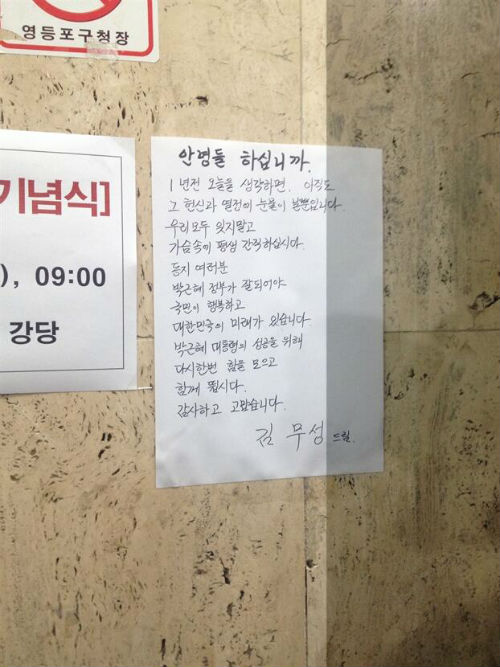 영등포구청장
기념식]
), 09:00
강당
안녕들 하십니까.
1년전 오늘을 생각하면, 아직도
그 헌신과 열정에 눈물이 날뿐입니다.
우리모두 잊지말고
가슴속에 평생 간직하십시다.
동지 여러분
박근혜 정부가 잘되어야
국민이 행복하고
대한민국의 미래가 있습니다
박근혜 대통령의 성공을 위해
다시한번 힘을 모으고
함께 뜁시다.
감사하고 고맙습니다.
김 무성 드림.